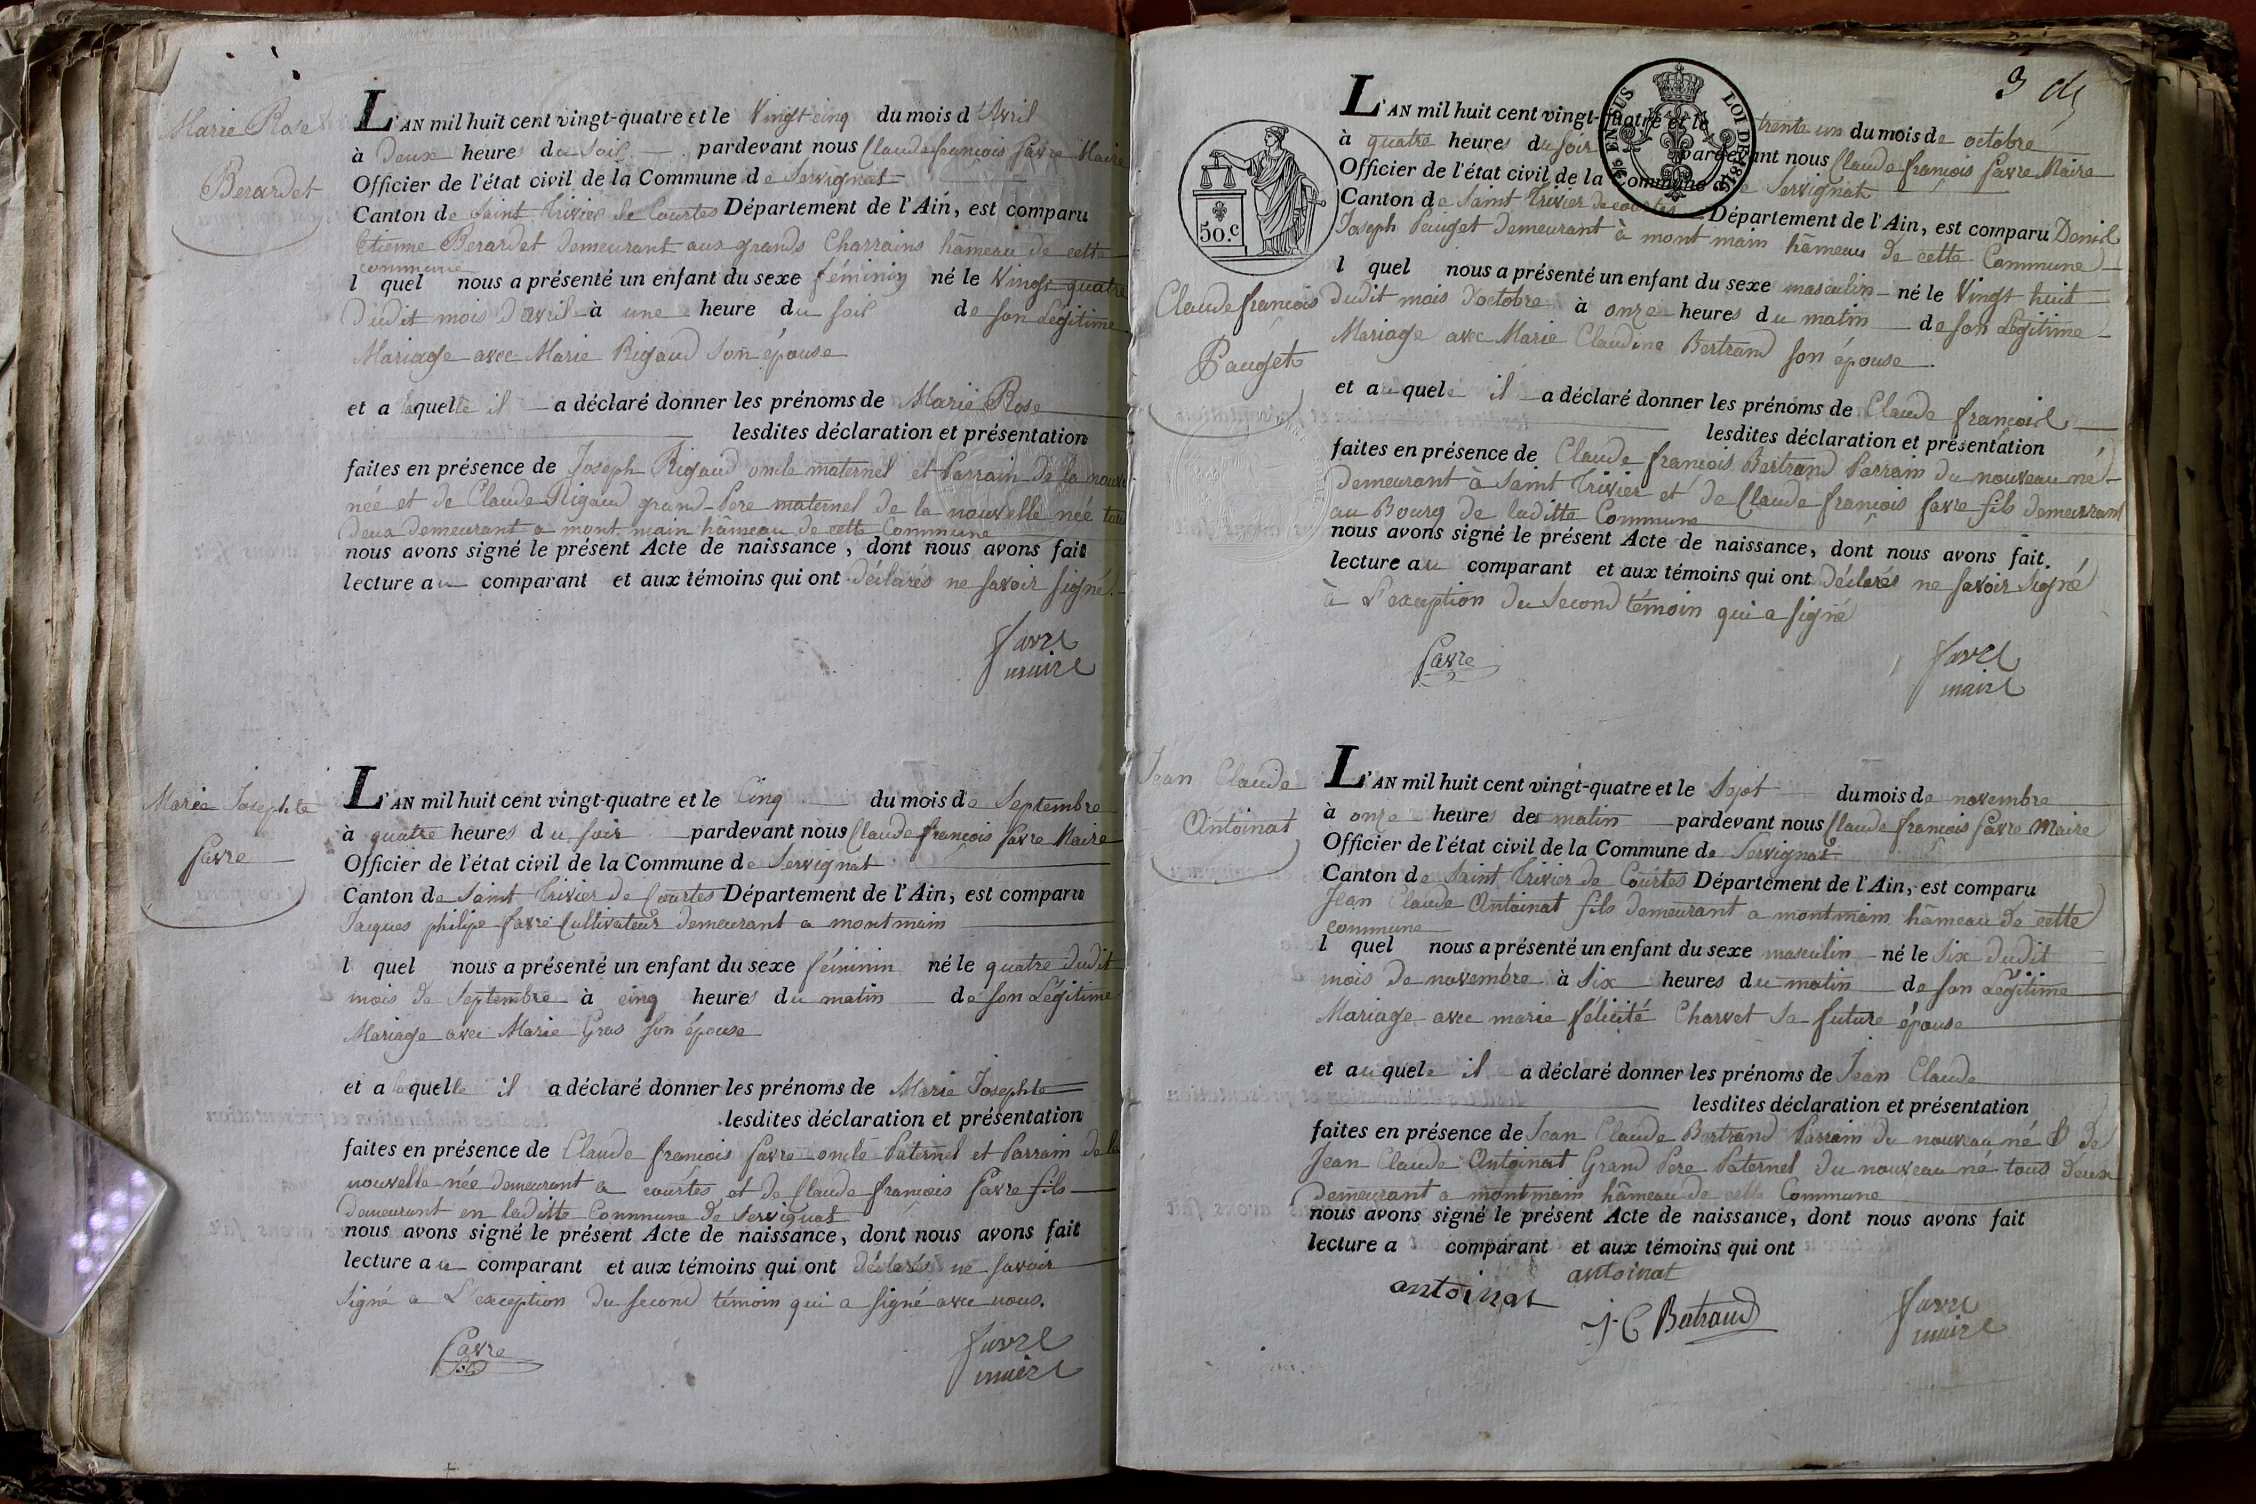 Marie Rose
Berardet
L'AN mil huit cent vingt-quatre et le Vingt cinq du mois d'Avril
à Deux heures du Soir pardevant nous Claude françois favre Maire
Officier de l'état civil de la Commune de Servignat
Canton de Saint Trivier de Courtes Département de l'Ain, est comparu
Etienne Berardet demeurant aux grands Charrains hâmeau de cette
commune
l quel nous a présenté un enfant du sexe féminin né le Vingt quatre
dudit mois d'avril à une heure du soir de son Légitime
Mariage avec Marie Rigaud son épouse
et a laquelle il a déclaré donner les prénoms de Marie Rose
lesdites déclaration et présentation
faites en présence de Joseph Rigaud oncle maternel et Parrain de la nouvel
née et de Claude Rigaud grand-Pere maternel de la nouvelle née tous
deux demeurant a mont-main hâmeau de cette Commune
nous avons signé le présent Acte de naissance, dont nous avons fait
lecture au comparant et aux témoins qui ont déclarés ne savoir signé.
favre
maire
Marie Josephte
favre
L'AN mil huit cent vingt-quatre et le Cinq du mois de Septembre
à quatre heures du soir pardevant nous Claude françois favre Maire
Officier de l'état civil de la Commune de Servignat
Canton de Saint Trivier de Courtes Département de l'Ain, est comparu
Jacques philipe favre Cultivateur demeurant a montmain
l quel nous a présenté un enfant du sexe féminin né le quatre dudit
mois de Septembre à cinq heures du matin de son Légitime
Mariage avec Marie Gras son épouse
et a laquelle il a déclaré donner les prénoms de Marie Josephte
lesdites déclaration et présentation
faites en présence de Claude françois favre oncle Paternel et Parrain de la
nouvelle née demeurant a courtes et de Claude françois favre fils
demeurant en laditte Commune de Servignat
nous avons signé le présent Acte de naissance, dont nous avons fait
lecture au comparant et aux témoins qui ont déclarés ne savoir
signé a L'exception du second témoin qui a signé avec nous.
favre
favre
maire
3
L'AN mil huit cent vingt-quatre et le trente un du mois de octobre
à quatre heures du soir pardevant nous Claude françois favre Maire
Officier de l'état civil de la Commune de Servignat
Canton de Saint Trivier de courtes Département de l'Ain, est comparu Deniel
Joseph Pauget demeurant à mont main hâmeau de cette Commune
50.c
LOI DE 1816
l quel nous a présenté un enfant du sexe masculin né le Vingt huit
Claude françois
Pauget
dudit mois d'octobre à onze heures du matin de son Légitime
Mariage avec Marie Claudine Bertrand son épouse
et auquel il a déclaré donner les prénoms de Claude françois
lesdites déclaration et présentation
faites en présence de Claude françois Bertrand Parrain du nouveau né
demeurant à Saint Trivier et de Claude françois favre fils demeurant
au Bourg de laditte Commune
nous avons signé le présent Acte de naissance, dont nous avons fait.
lecture au comparant et aux témoins qui ont déclarés ne savoir signé
à L'exception du Second témoin qui a signé
favre
favre
maire
Jean Claude
Antoinat
L'AN mil huit cent vingt-quatre et le Sept du mois de novembre
à onze heures du matin pardevant nous Claude françois favre Maire
Officier de l'état civil de la Commune de Servignat
Canton de Saint Trivier de Courtes Département de l'Ain, est comparu
Jean Claude Antoinat fils demeurant a montmain hâmeau de cette
commune
l quel nous a présenté un enfant du sexe masculin né le Six dudit
mois de novembre à Six heures du matin de son Légitime
Mariage avec marie félicité Charvet sa future épouse
et auquel il a déclaré donner les prénoms de Jean Claude
lesdites déclaration et présentation
faites en présence de Jean Claude Bertrand Parrain du nouveau né & de
Jean Claude Antoinat Grand Pere Paternel du nouveau né tous deux
demeurant a montmain hâmeau de cette Commune
nous avons signé le présent Acte de naissance, dont nous avons fait
lecture a comparant et aux témoins qui ont
antoinat
antoinat
J C Bertrand
favre
maire